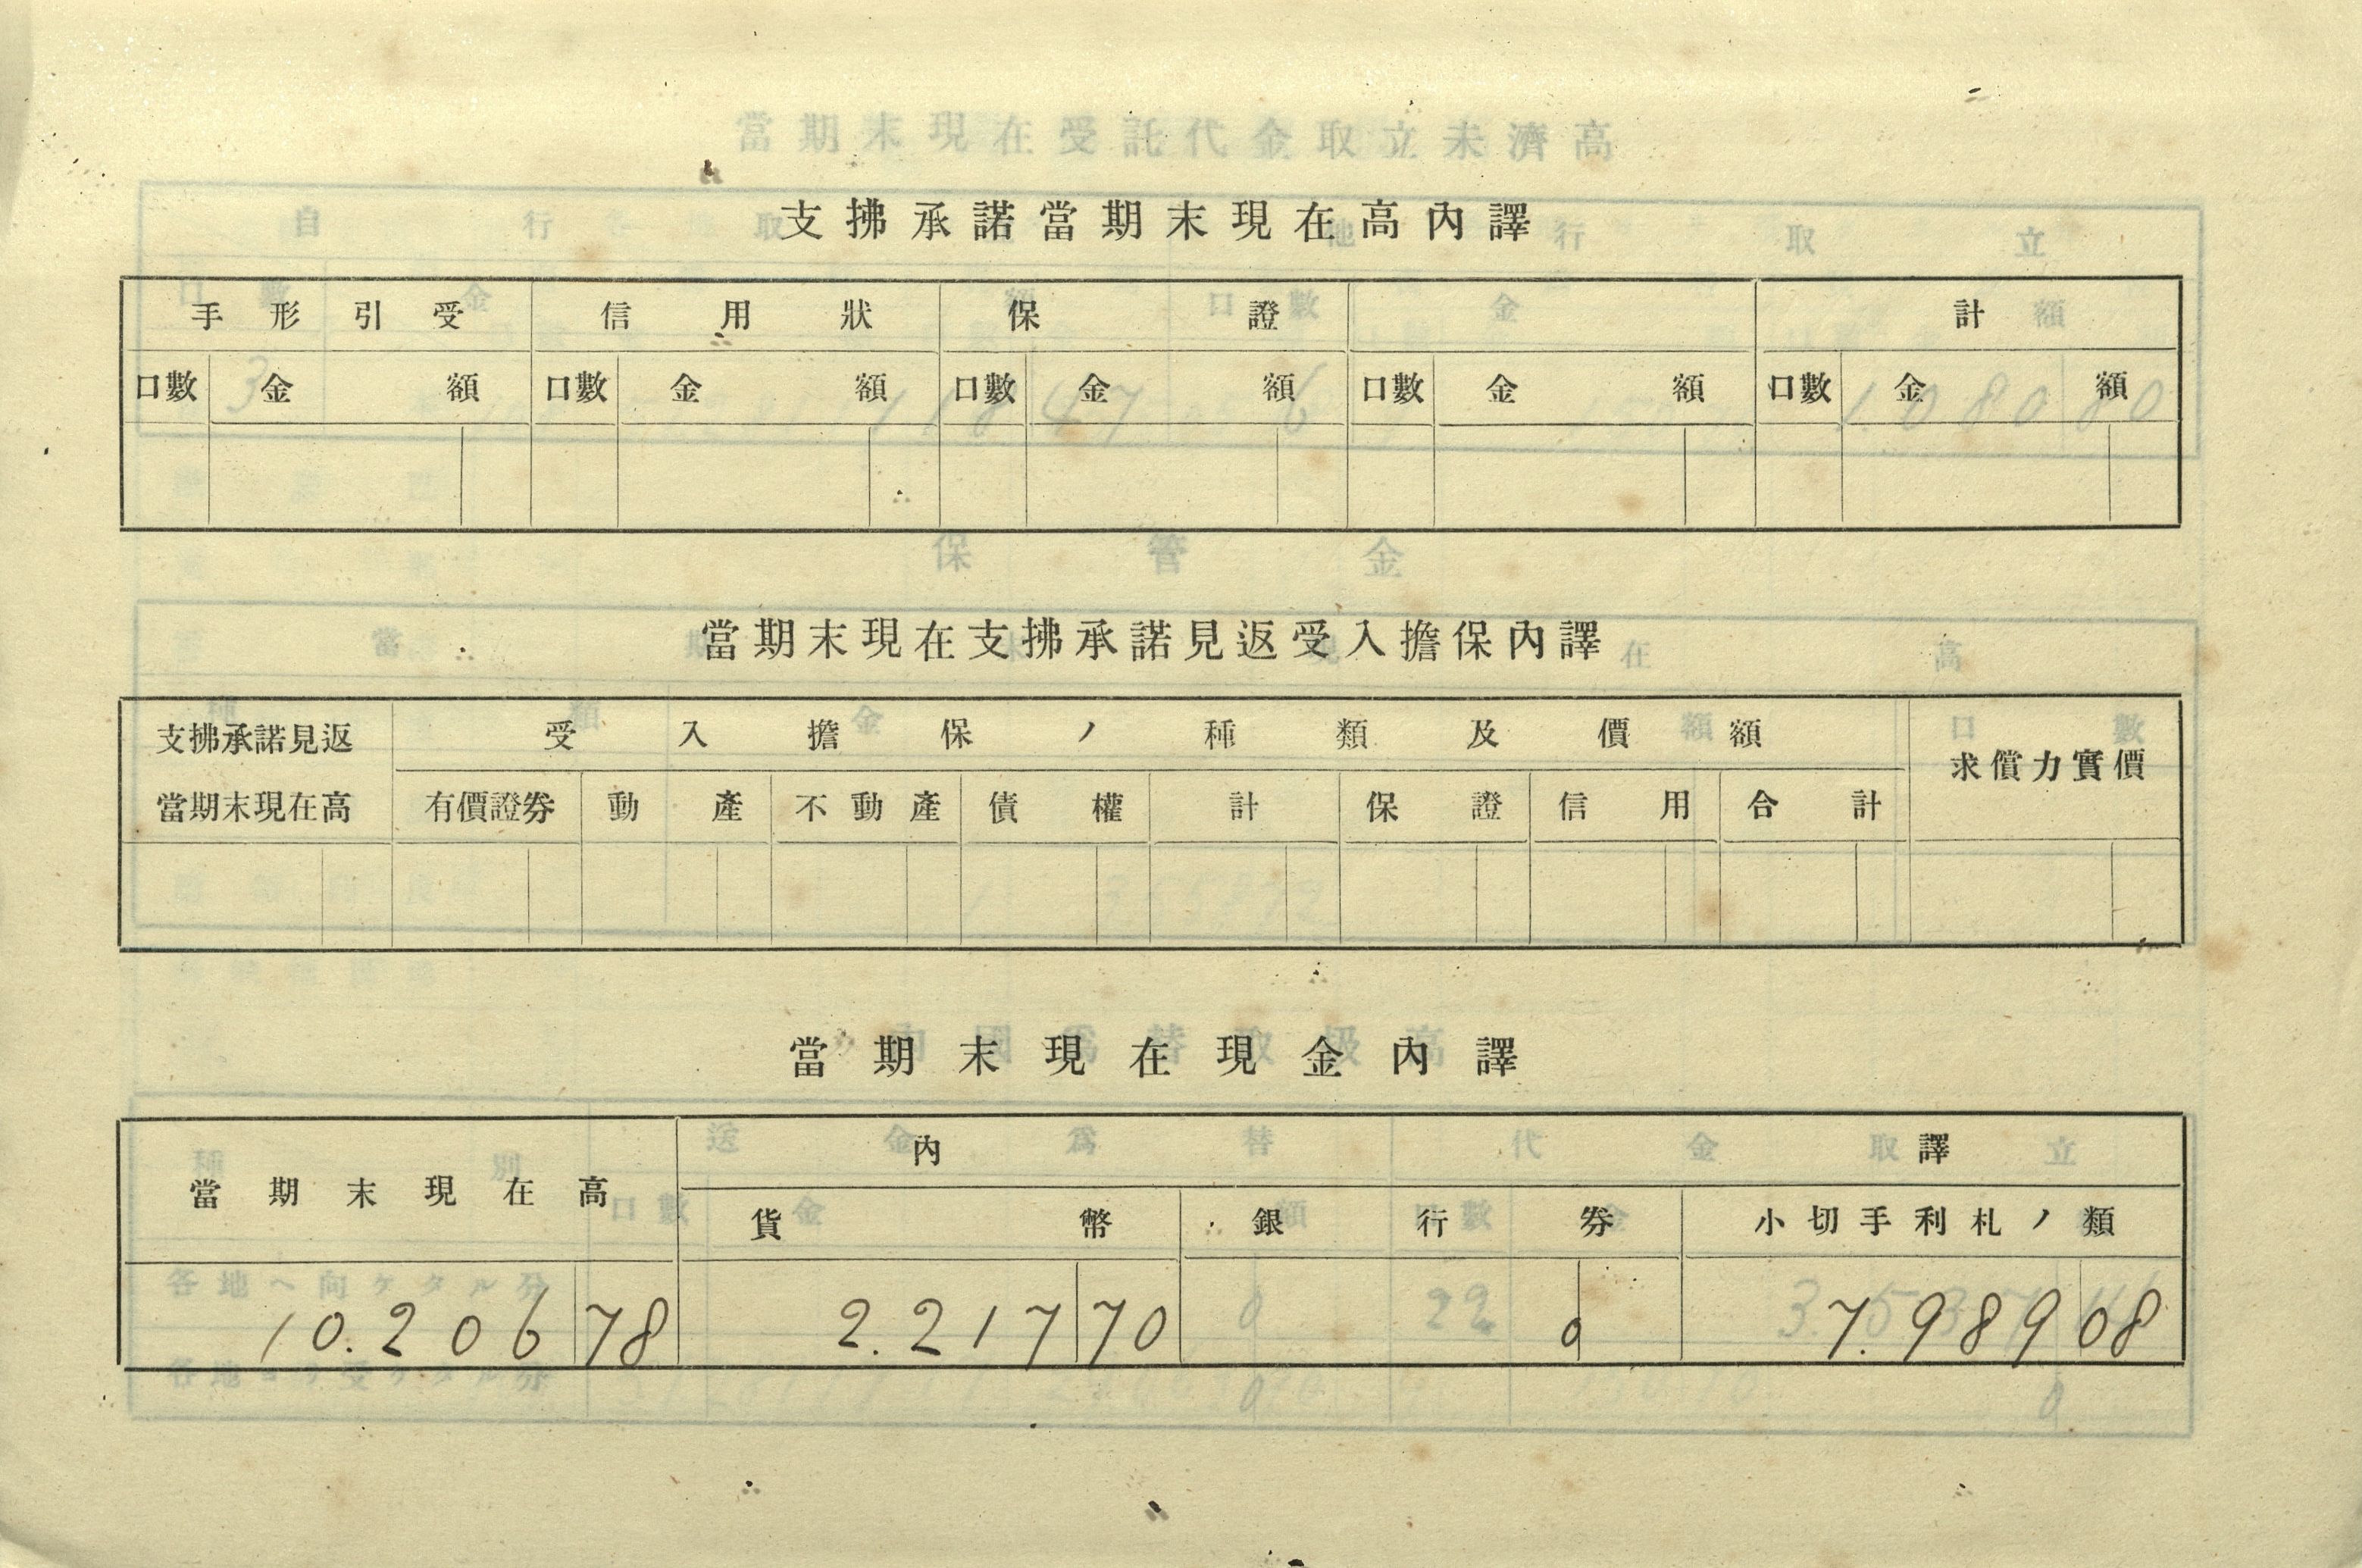 支拂承諾當期末現在高內譯
手形引受 信用狀 保證 計
口數 金額 口數 金額 口數 金額 口數 金額 口數 金額
當期末現在支拂承諾見返受入擔保內譯
支拂承諾見返當期末現在高 受入擔保ノ種類及價額 求償力實價
有價證券 動產 不動產 債權 計 保證 信用 合計
當期末現在現金內譯
當期末現在高 內譯
貨幣 銀行券 小切手利札ノ類
10.206 78 2.217 70 0 7.989 08